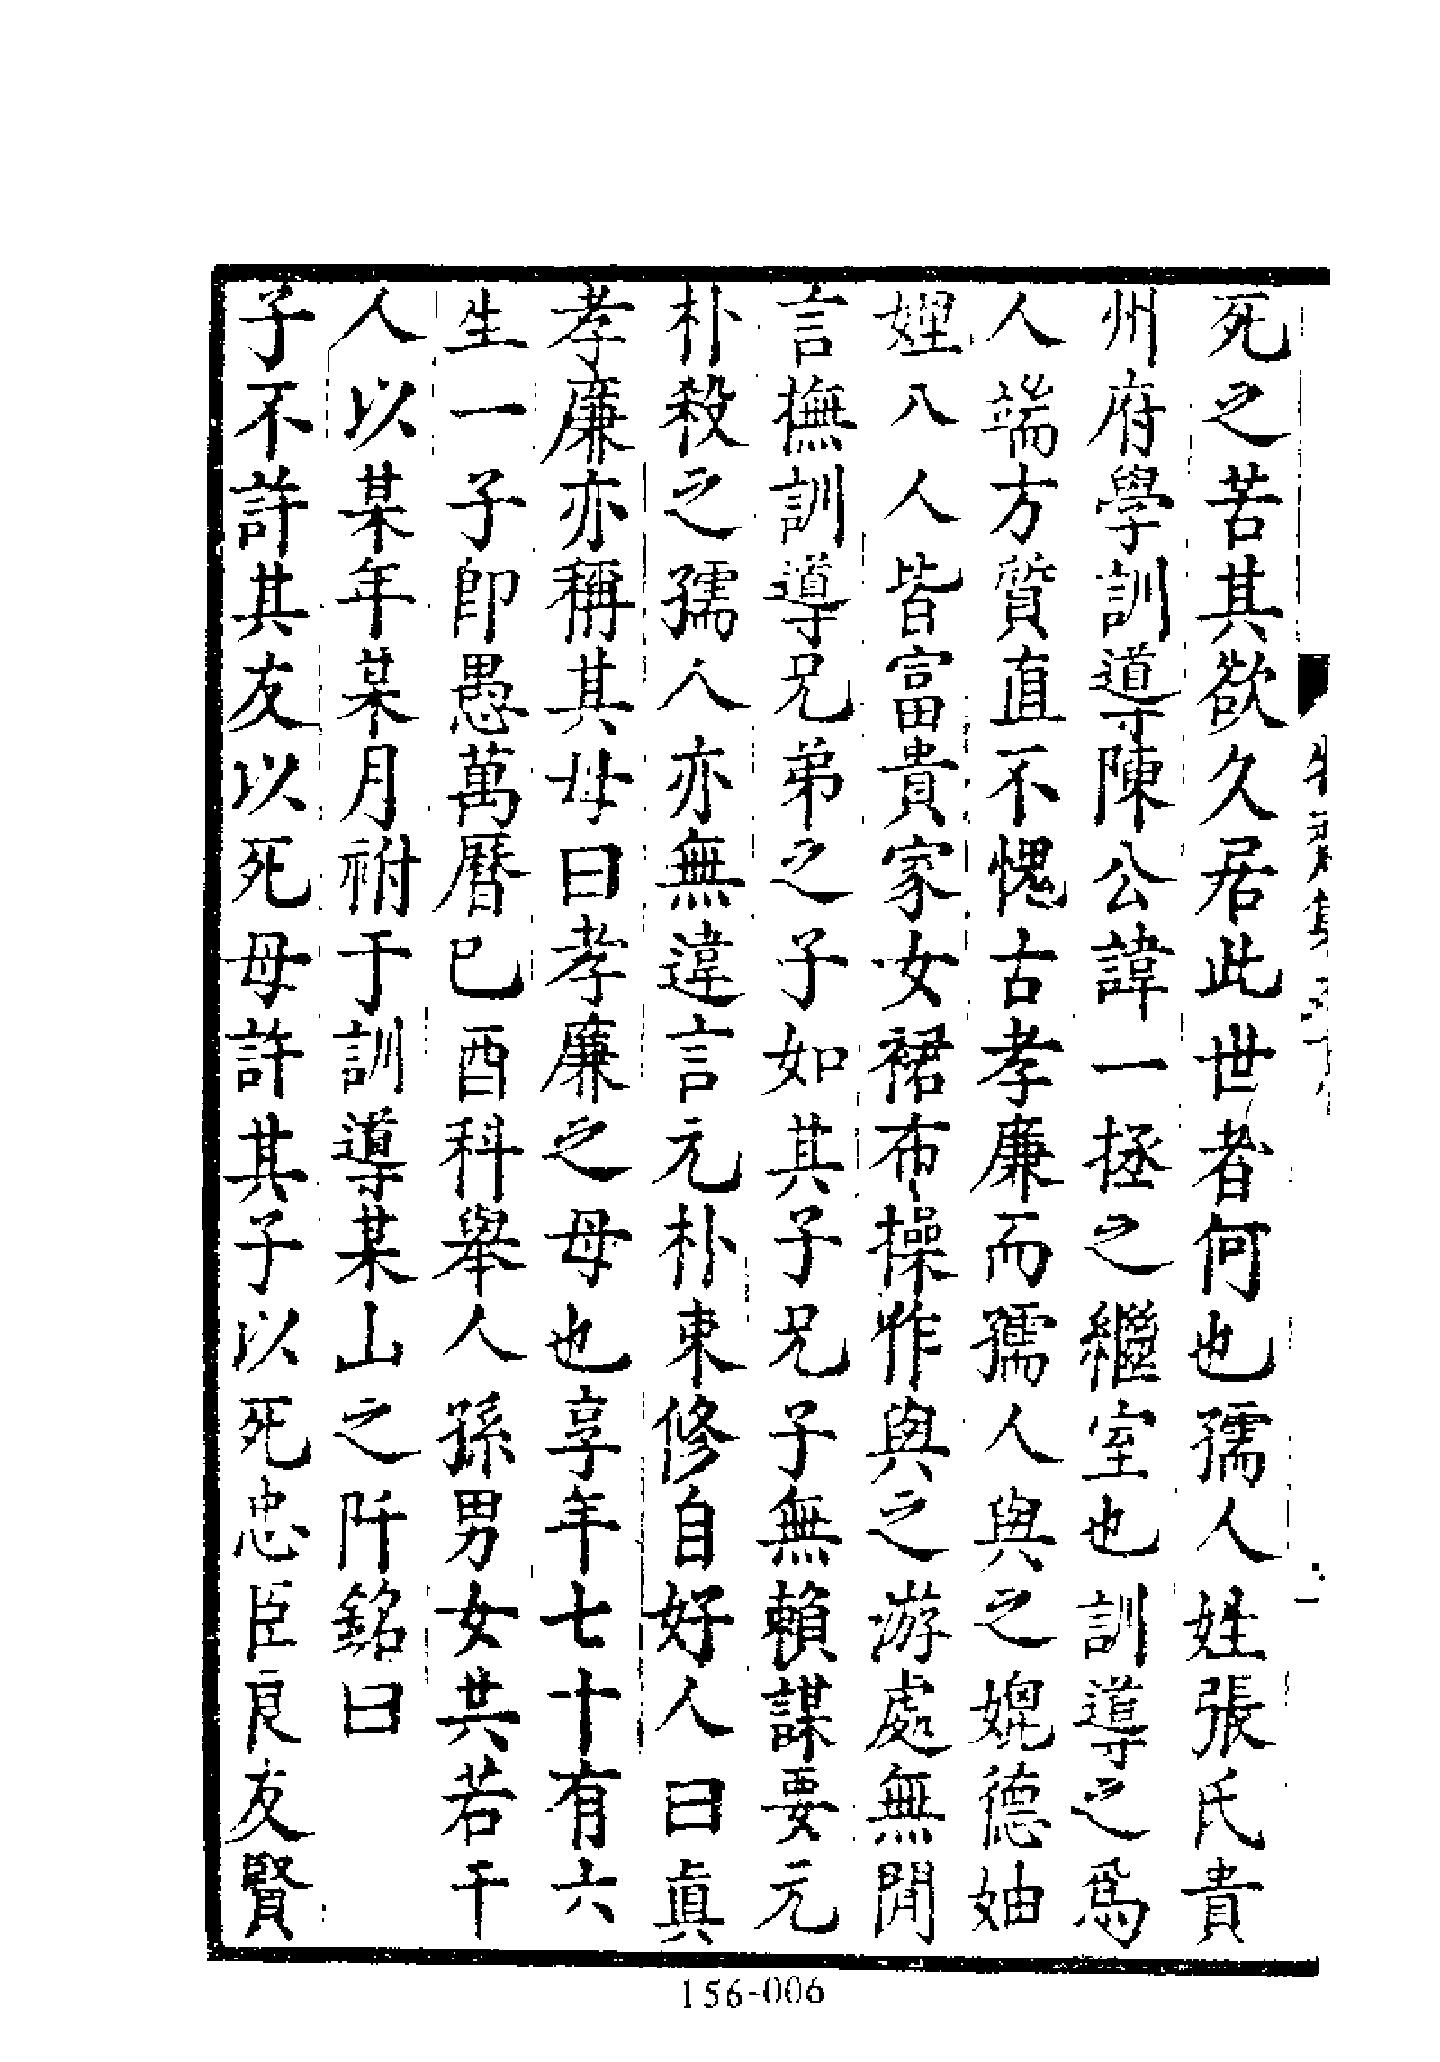 死之苦其欲久居此世者何也孺人姓張氏貴
州府學訓導陳公諱一拯之繼室也訓導之爲
人端方質直不愧古孝廉而孺人與之媲德妯
娌八人皆富貴家女裙布操作與之游處無閒
言撫訓導兄弟之子如其子兄子無賴謀要元
朴殺之孺人亦無違言元朴束修自好人曰真
孝廉亦稱其母曰孝廉之母也享年七十有六
生一子卽愚萬曆己酉科舉人孫男女共若干
人以某年某月祔于訓導某山之阡銘曰
子不許其友以死母許其子以死忠臣良友賢
156-006